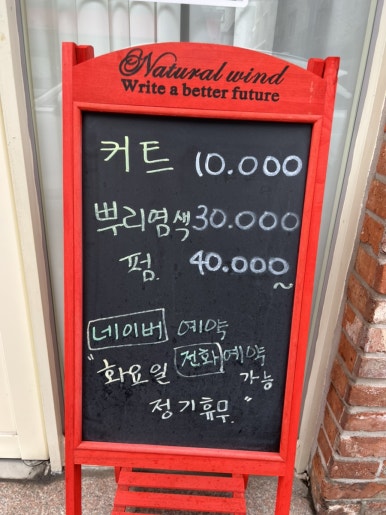 Natural wind
Write a better future
커트 10.000
뿌리염색 30.000
펌. 40.000~
네이버 예약
전화 예약 가능
"화요일
정기휴무."